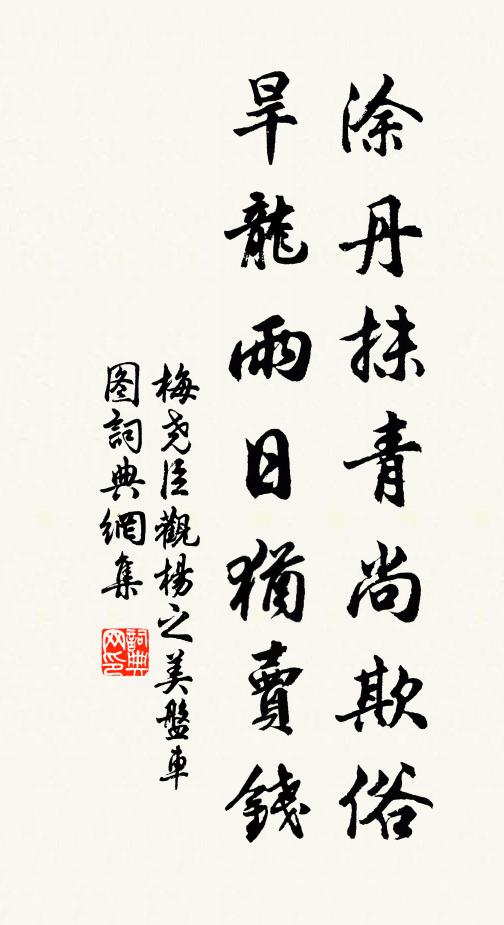 涂丹抹青尚欺俗
旱龍雨日猶賣錢
梅尧臣觀楊之美盤車
图詞典網集
詞典网印